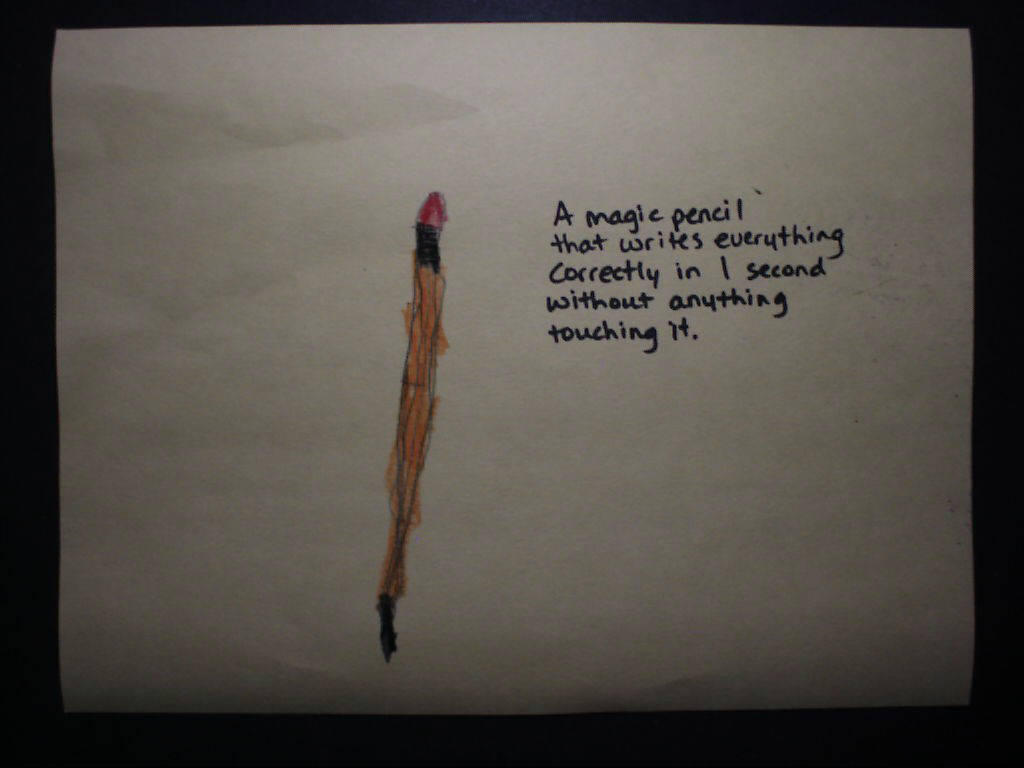 A magic pencil
that writes everything
correctly in 1 second
without anything
touching it.